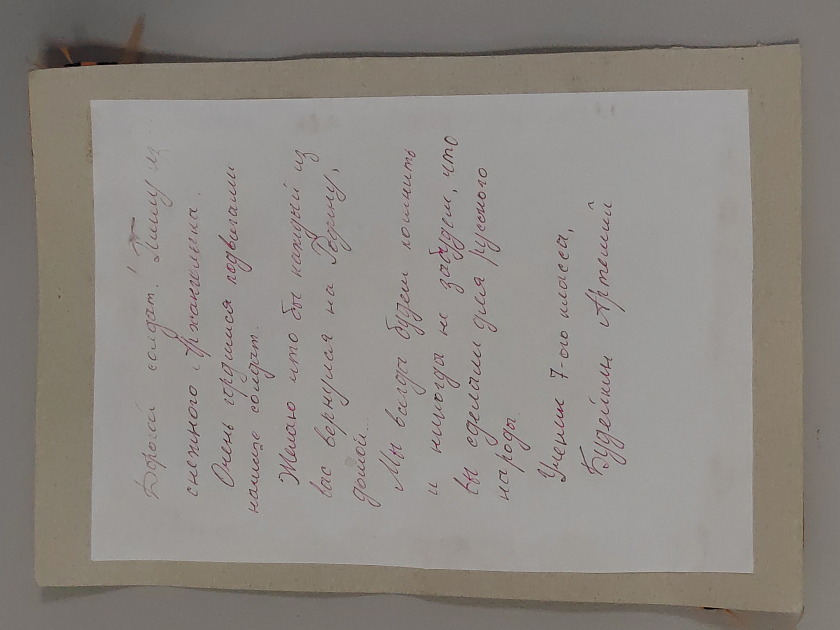 Дорогой солдат! Пишу из
снежного Архангельска.
Очень гордимся подвигами
наших солдат.
Желаю что бы каждый из
вас вернулся на Родину,
домой.
Мы всегда будем помнить
и никогда не забудем, что
вы сделали для русского
народа.
Ученик 7-ого класса,
Будейкин Артемий